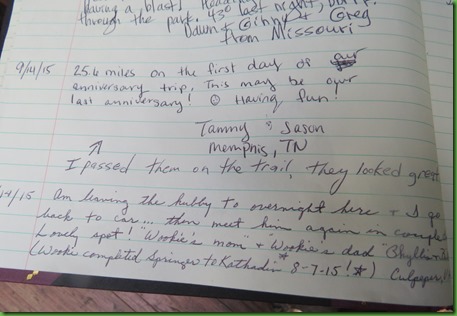 having a blast!
through the park. 430 last night,
Dawn & Ginny & Greg
from Missouri
9/14/15 25.6 miles on the first day of our
anniversary trip. This may be our
last anniversary! ☺ Having fun!
Tammy & Jason
Memphis, TN
I passed them on the trail, they looked great
4/15 Am leaving the hubby to overnight here & I go
back to car... then meet him again in
Lovely spot! "Wookie's mom" & Wookie's dad
(Wookie completed Springer to Kathadin 8-7-15!*) Culpeper,